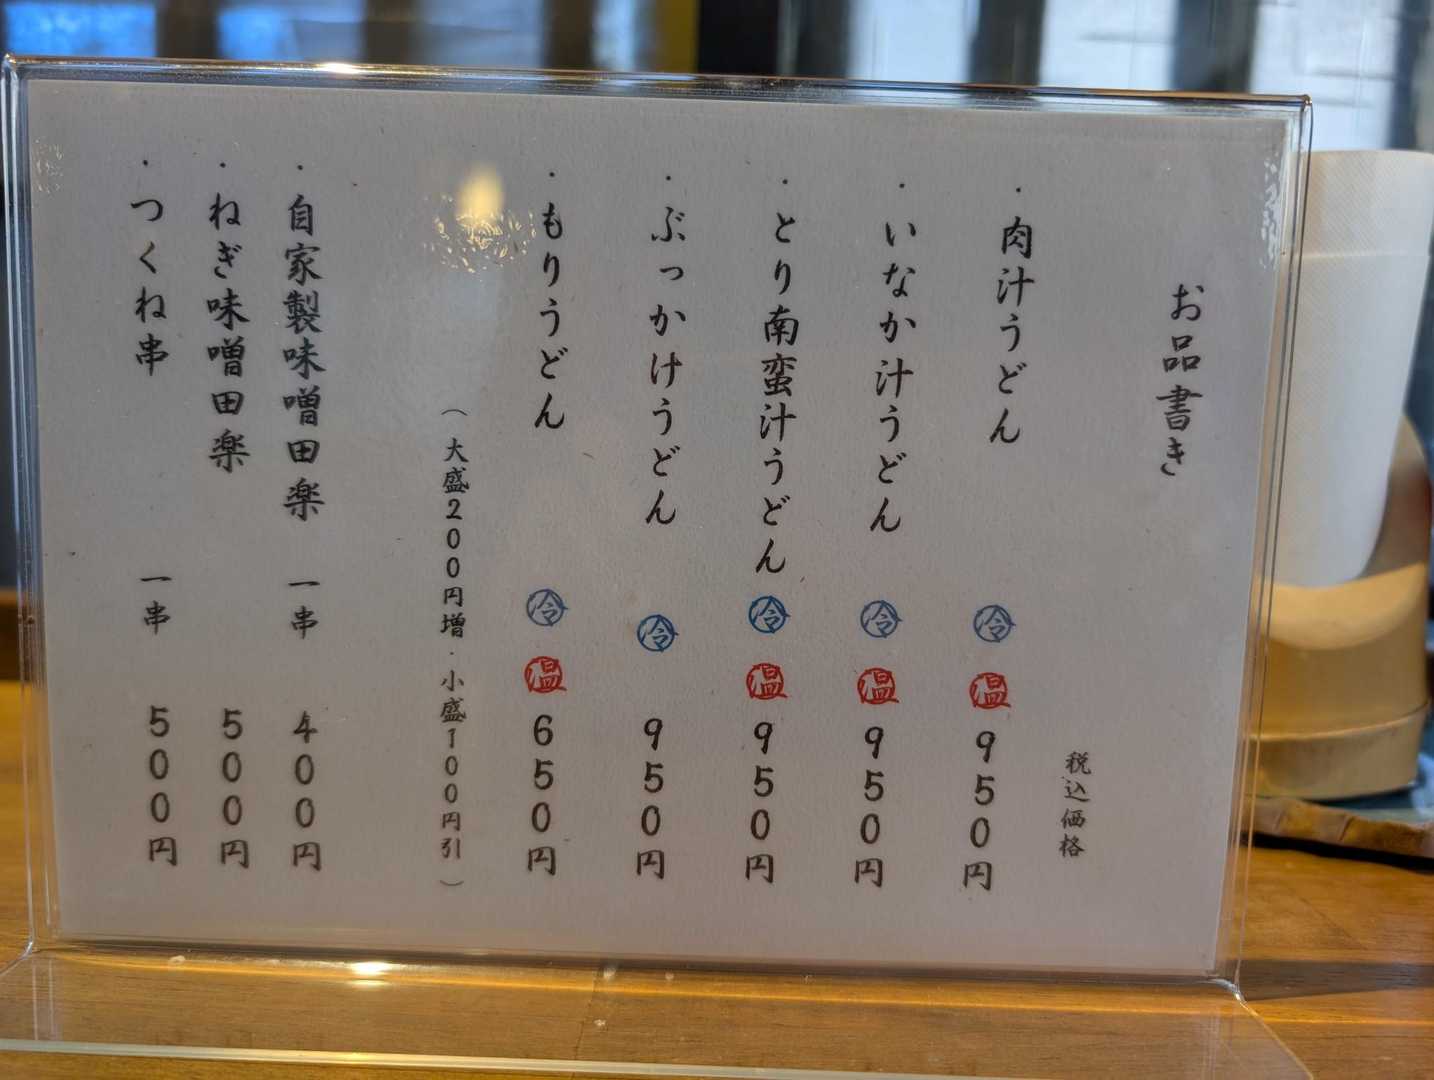 お品書き
税込価格
・肉汁うどん ㊥冷 温 950円
・いなか汁うどん 冷 温 950円
・とり南蛮汁うどん 冷 温 950円
・ぶっかけうどん 冷 950円
・もりうどん 冷 温 650円
（大盛200円増・小盛100円引）
・自家製味噌田楽 一串 400円
・ねぎ味噌田楽 500円
・つくね串 一串 500円